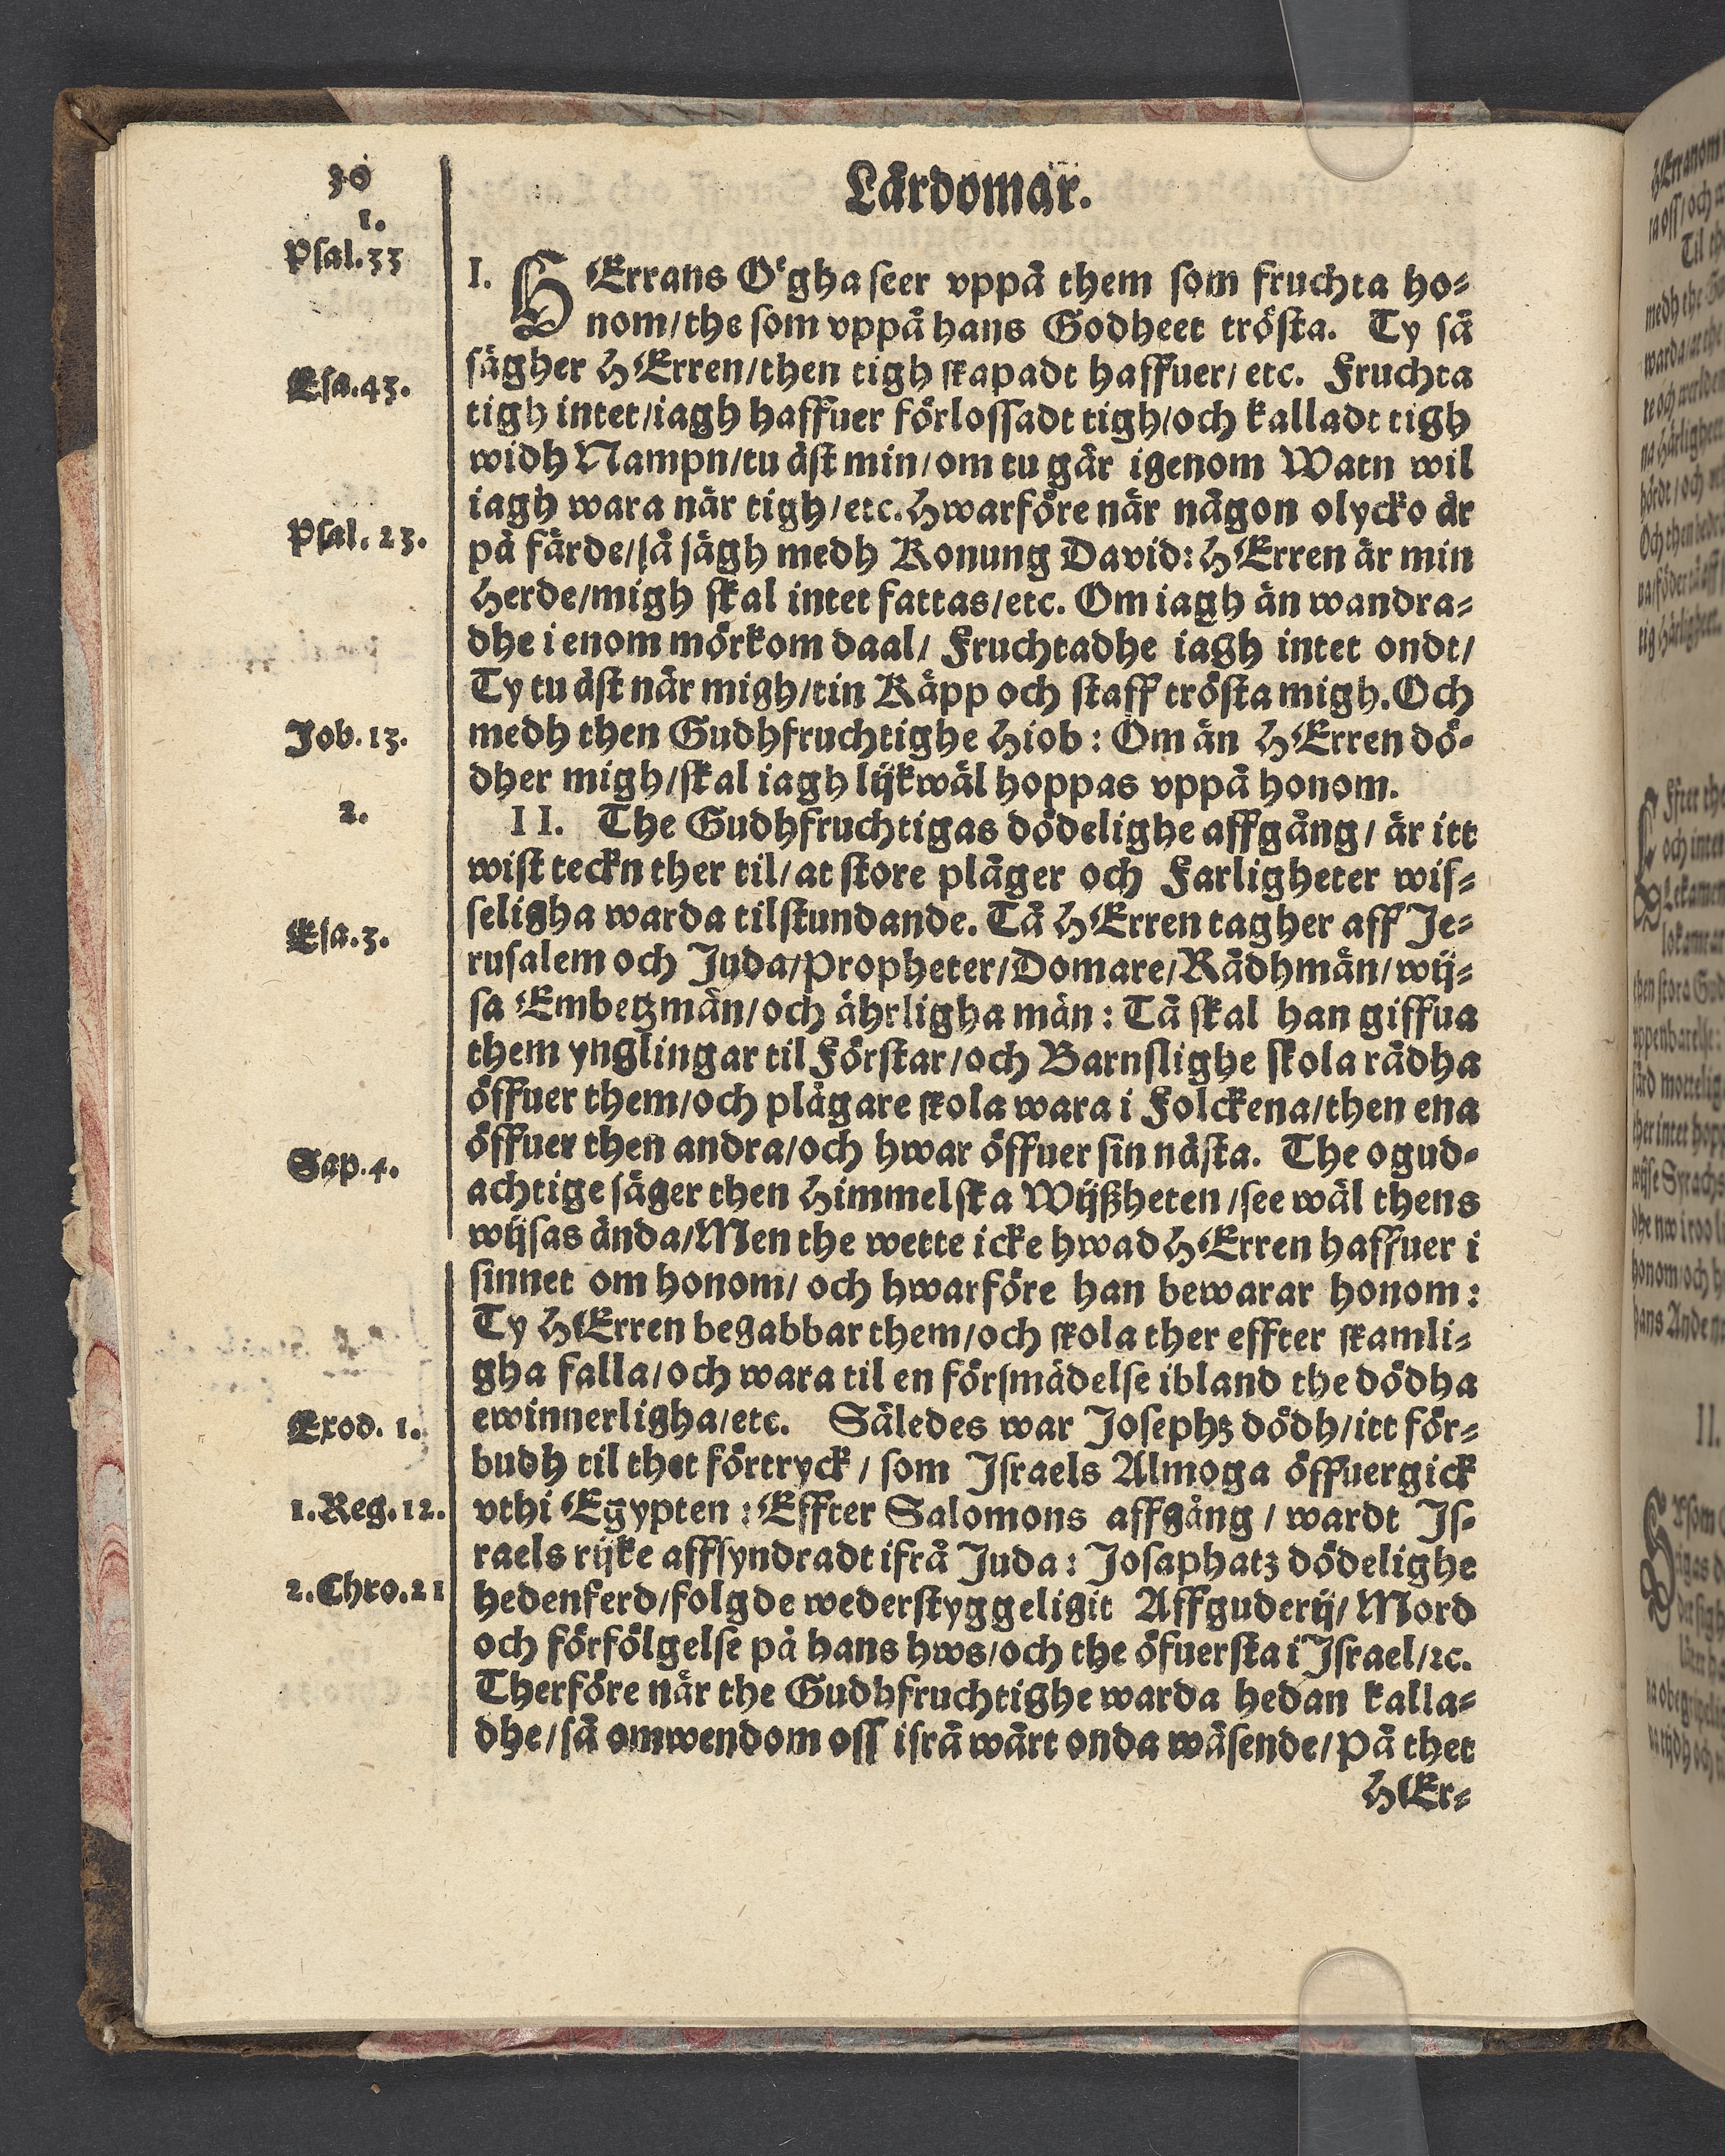 30
Lärdomar.
1.
Psal.33
I. HErrans Ögha seer vppå them som fruchta ho⸗
nom/the som vppå hans Godheet trösta. Ty så
Esa.43.
sägher HErren/then tigh skapadt haffuer/ etc. Fruchta
tigh intet/iagh haffuer förlossadt tigh/och kalladt tigh
widh Nampn/tu äst min/om tu går igenom Watn wil
iagh wara när tigh/etc. Hwarföre när någon olycko är
Psal. 23.
på färde/så sägh medh Konung David: HErren är min
Herde/migh skal intet fattas/etc. Om iagh än wandra⸗
dhe i enom mörkom daal/ Fruchtadhe iagh intet ondt/
Ty tu äst när migh/tin Käpp och staff trösta migh. Och
Job. 13.
medh then Gudhfruchtighe Hiob: Om än HErren dö⸗
dher migh/skal iagh lijkwäl hoppas vppå honom.
2.
II. The Gudhfruchtigas dödelighe affgång/ är itt
wist teckn ther til/at store plåger och Farligheter wis⸗
seligha warda tilstundande. Tå HErren tagher aff Je⸗
Esa.3.
rusalem och Juda/Propheter/Domare/Rådhmän/wij⸗
sa Embetzmän/och ährligha män: Tå skal han giffua
them ynglingar til Förstar/och Barnslighe skola rådha
öffuer them/och plågare skola wara i Folckena/then ena
öffuer then andra/och hwar öffuer sin nästa. The ogud⸗
Sap.4.
achtige säger then Himmelska Wijßheten/see wäl thens
wijsas ända/Men the wette icke hwad HErren haffuer i
sinnet om honom/ och hwarföre han bewarar honom:
Ty HErren begabbar them/och skola ther effter skamli⸗
gha falla/och wara til en försmädelse ibland the dödha
Exod. 1.
ewinnerligha/etc. Således war Josephz dödh/itt för⸗
budh til thet förtryck/ som Israels Almoga öffuergick
1.Reg.12.
vthi Egypten: Effter Salomons affgång/ wardt Is⸗
raels rijke affsyndradt ifrå Juda: Josaphatz dödelighe
2.Chro.21
hedenferd/folgde wederstyggeligit Affguderij/ Mord
och förfölgelse på hans hws/och the öfuersta i Israel/ꝛc.
Therföre när the Gudhfruchtighe warda hedan kalla⸗
dhe/så omwendom oss ifrå wårt onda wäsende/På thet
HEr⸗